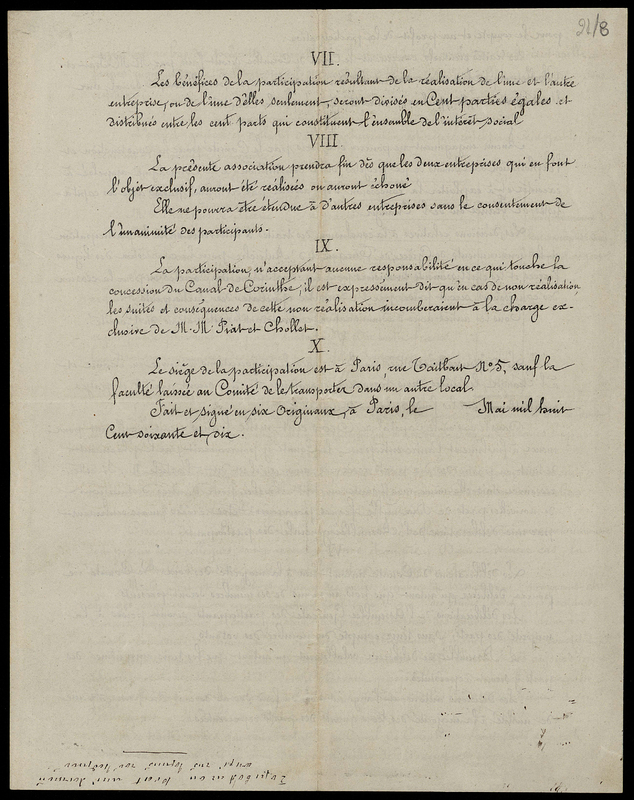 21/8
VII.
Les bénéfices de la participation résultant de la réalisation de l'une et l'autre
entreprise, ou de l'une d'elles seulement, seront divisés en Cent parties égales et
distribués entre les cent parts qui constituent l'ensemble de l'intérêt social
VIII
La présente association prendra fin dès que les deux entreprises qui en font
l'objet exclusif, auront été réalisées ou auront échoué
Elle ne pourra être étendue à d'autres entreprises sans le consentement de
l'unanimité des participants.
IX.
La participation, n'acceptant aucune responsabilité en ce qui touche la
concession du Canal de Corinthe, il est expressément dit qu'en cas de non réalisation,
les suites et conséquences de cette non réalisation incomberaient à la charge ex-
clusive de M. M. Piat et Chollet.
X.
Le siège de la participation est à Paris, rue Taitbout No 5, sauf la
faculté laissée au Comité de le transporter dans un autre local
Fait et signé en six Originaux, à Paris, le Mai mil huit
Cent soixante et dix.